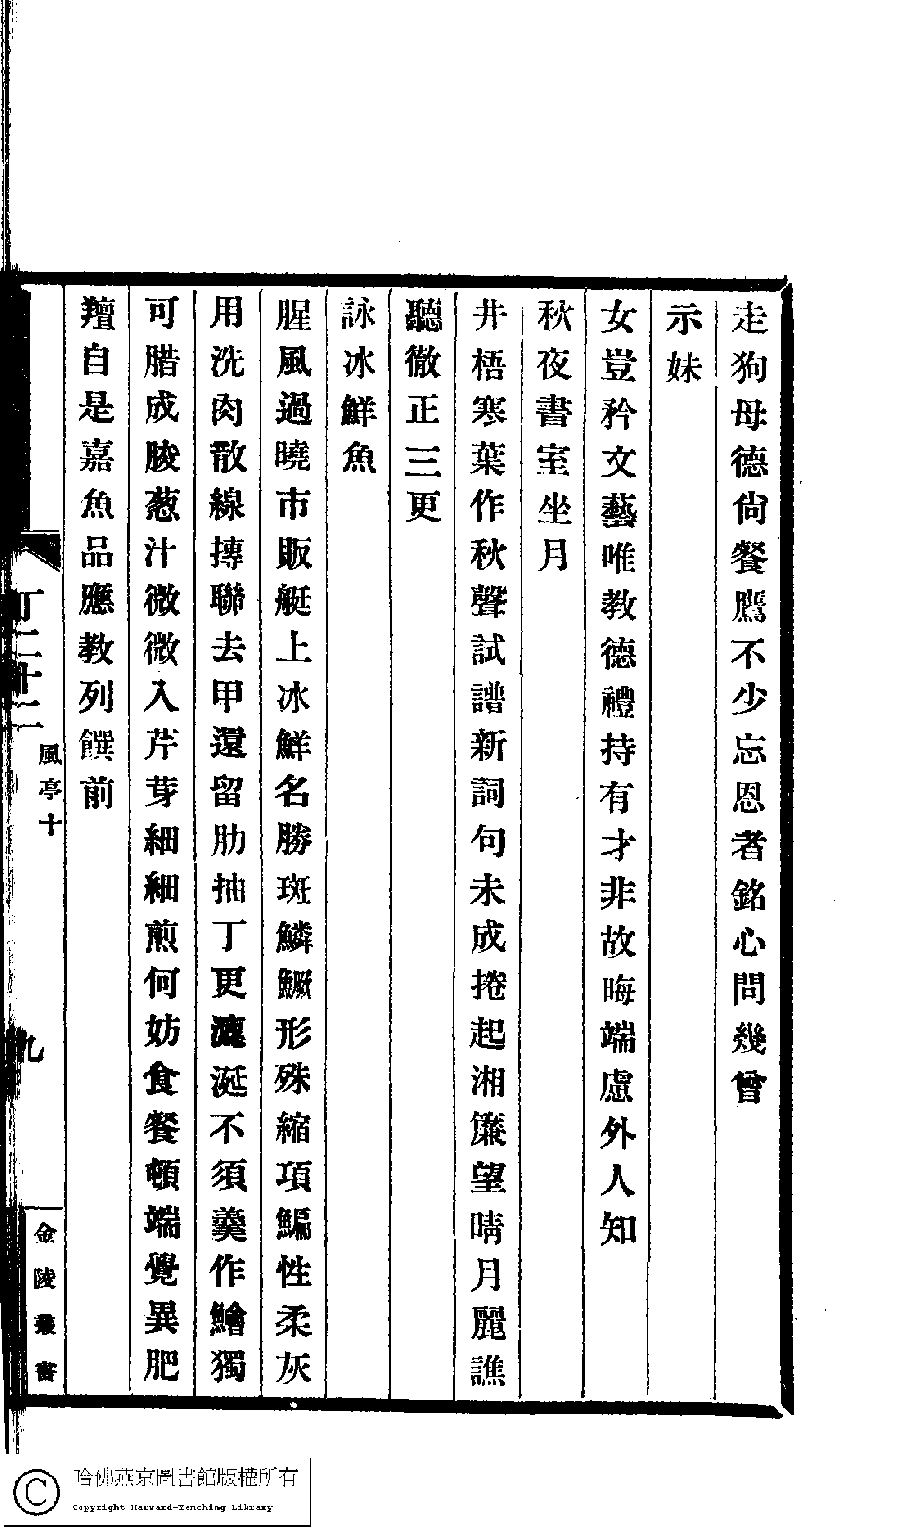 走狗母德尙餐鷹不少忘恩者銘心問幾曾
示妹
女豈矜文藝唯教德禮持有才非故晦端慮外人知
秋夜書室坐月
井梧寒葉作秋聲試譜新詞句未成捲起湘簾望晴月麗譙
聽徹正三更
詠冰鮮魚
腥風過曉市販艇上冰鮮名勝斑鱗鱖形殊縮項鯿性柔灰
用洗肉散線摶聯去甲還留肋抽丁更漉涎不須羹作鱠獨
可腊成朘葱汁微微入芹芽細細煎何妨食餐頓端覺異肥
羶自是嘉魚品應教列饌前
丁二十二
風亭十
九
金陵叢書
哈佛燕京圖書館版權所有
Copyright Harvard-Yenching Library